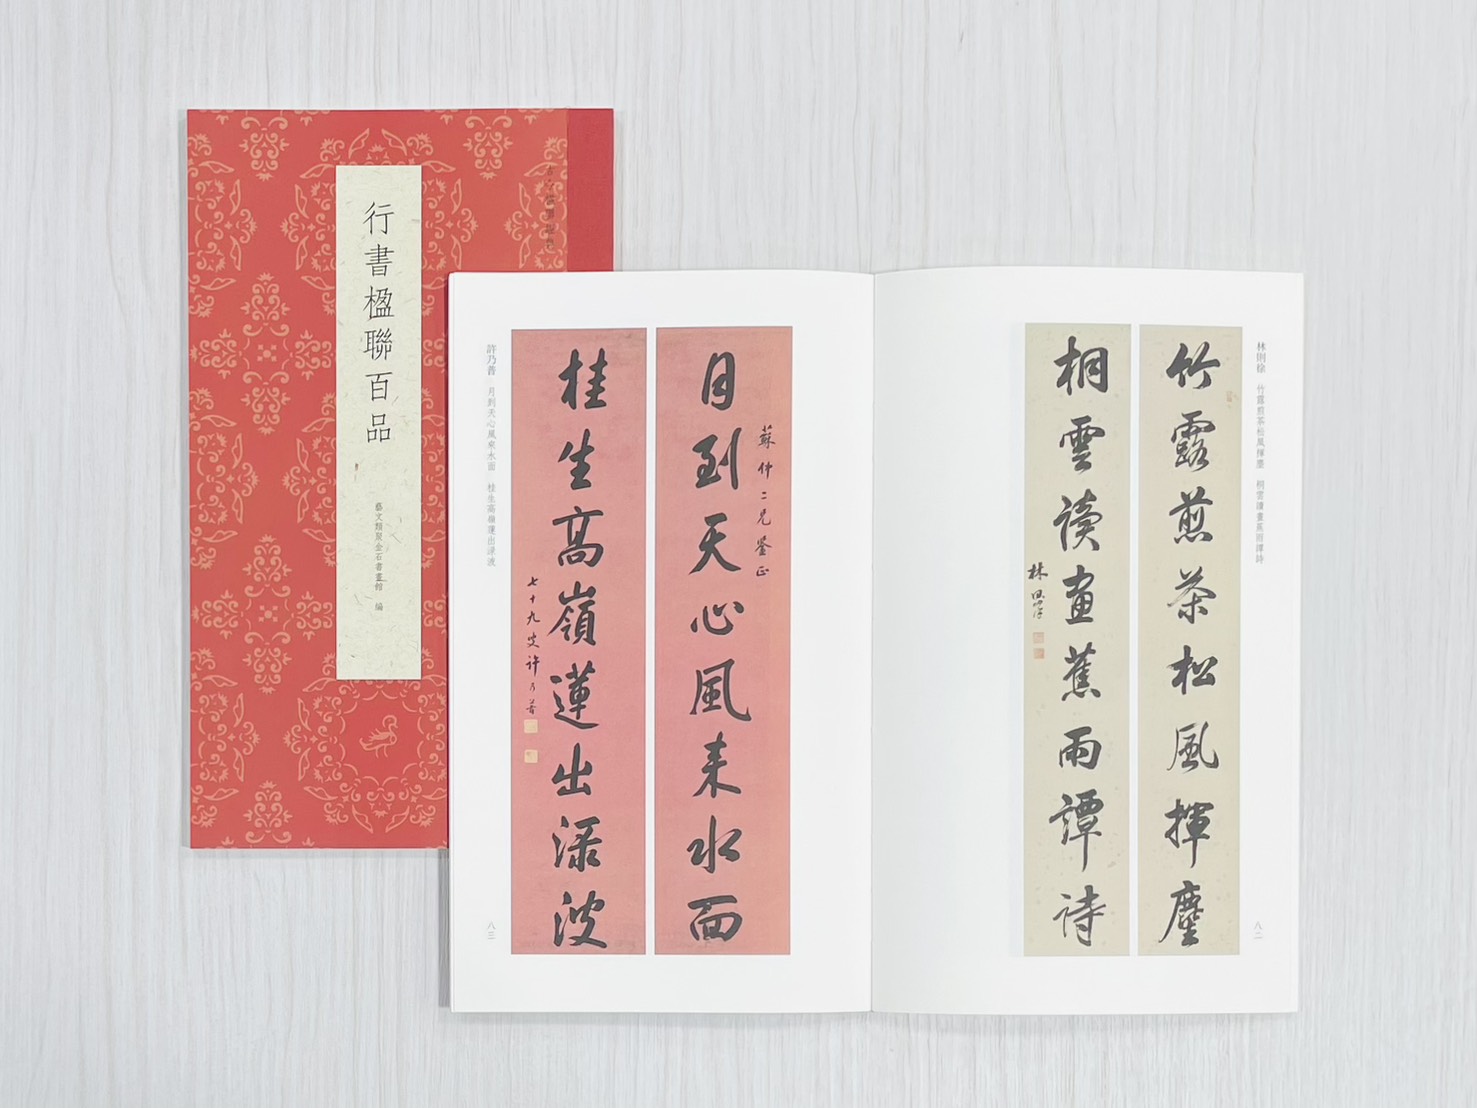 行書楹聯百品
藝文類聚金石書畫館 編
林則徐 竹露煎茶松風揮麈 桐雲讀畫蕉雨譚詩
八二
竹露煎茶松風揮麈
桐雲讀畫蕉雨譚詩
林則徐
蘇仲二兄鑒正
月到天心風来水面
桂生高嶺蓮出淥波
七十九叟許乃普
許乃普 月到天心風來水面 桂生高嶺蓮出淥波
八三